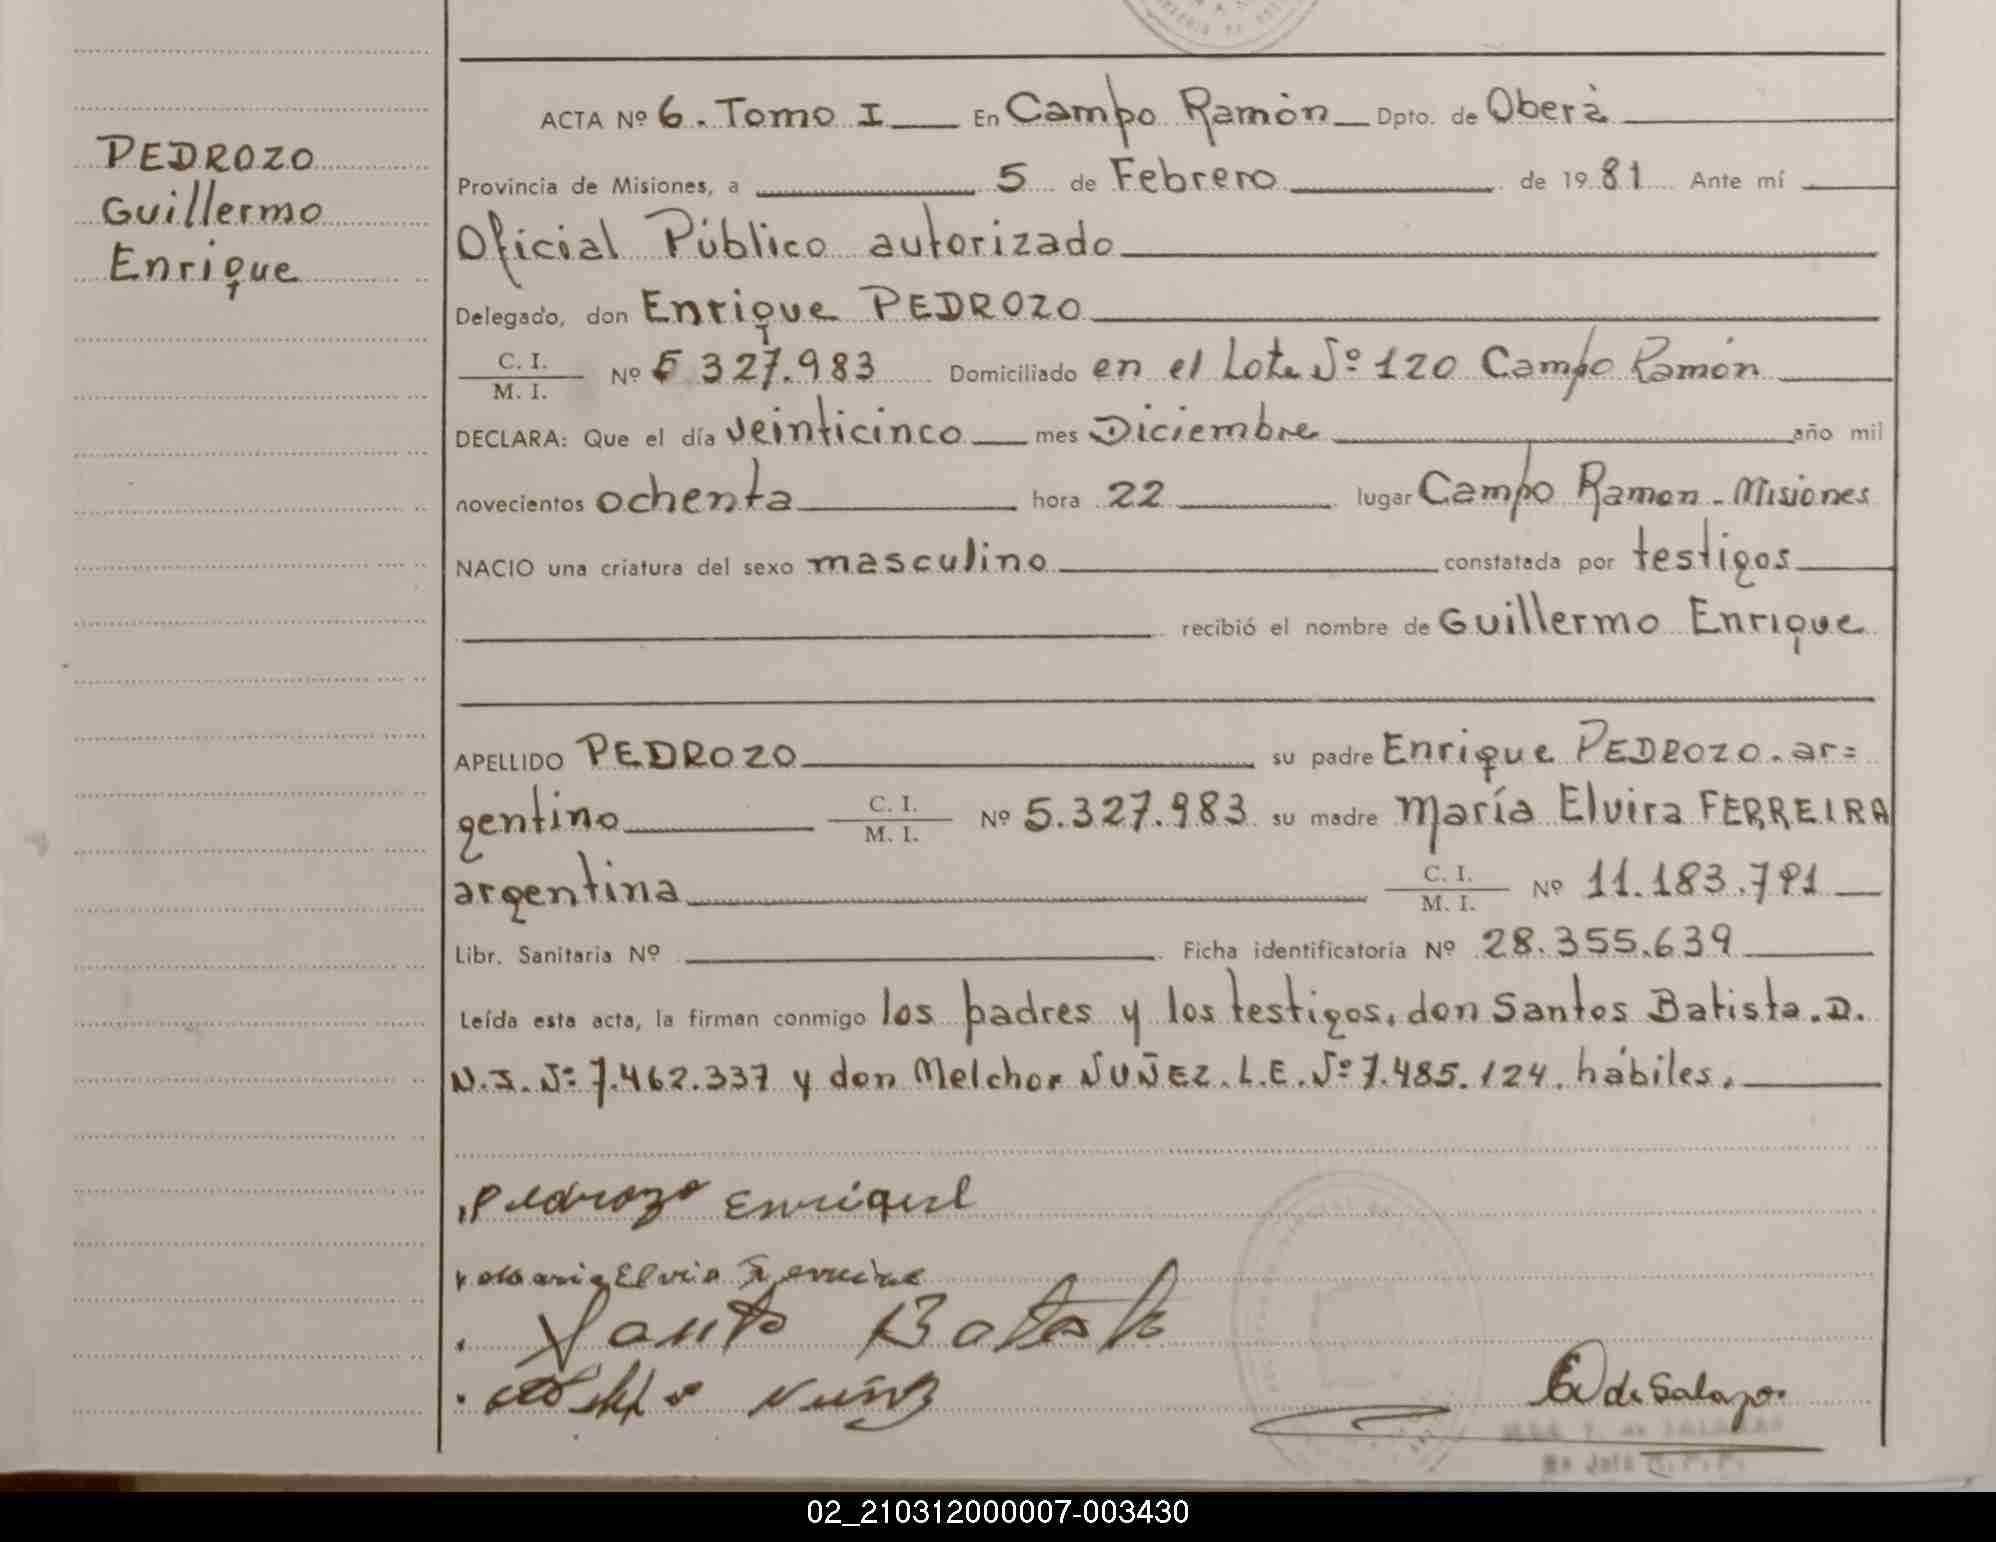 PEDROZO
Guillermo
Enrique
ACTA Nº 6. Tomo I En Campo Ramón Dpto. de Oberà
Provincia de Misiones, a 5 de Febrero de 1981 Ante mí
Oficial Público autorizado
Delegado, don Enrique PEDROZO
C. I.
M. I. Nº 5 327.983 Domiciliado en el Lote Nº 120 Campo Ramón
DECLARA: Que el día veinticinco mes Diciembre año mil
novecientos ochenta hora 22 lugar Campo Ramon - Misiones
NACIO una criatura del sexo masculino constatada por testigos
recibió el nombre de Guillermo Enrique
APELLIDO PEDROZO su padre Enrique PEDROZO. ar=
gentino C. I. M. I. Nº 5.327.983 su madre María Elvira FERREIRA
argentina C. I. M. I. Nº 11.183.791
Libr. Sanitaria Nº Ficha identificatoria Nº 28.355.639
Leída esta acta, la firman conmigo los padres y los testigos, don Santos Batista. D.
N.I. Nº 7.462.337 y don Melchor NUÑEZ. L.E. Nº 7.485.124. hábiles.
Pedrozo Enrique
Maria Elvira Ferreira
Santo Batista
Nuñez
de Salazar
02_210312000007-003430